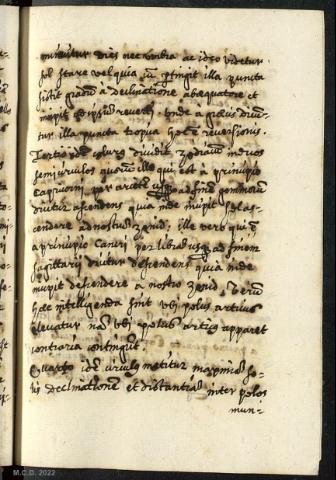 minuitur dies nec umbra ac ideo videtur
sol stare vel quia cū ptingit illa puncta
sistit gradū a declinatione ab æquatore et
incipit reverti unde a græcis dicun-
tur illa puncta tropica hoc ē reversionis.
Tertio idē colurus dividit zodiacū in duos
semicirculos quorū ille qui est a principio
capricorni per arietē usq ad finē geminorū
dicitur ascendens quia inde incipit sol as-
cendere ad nostrū zenid, ille vero qui ē
a principio cancri per librā usq ad finem
sagittarii dicitur descendens quia inde
incipit descendere a nostro zenid, verū
hæc intelligenda sint ubi polus articus
elevatur nā ubi polus articus apparet
contraria contingūt.
Quarto idē circulus metitur maximā so-
lis declinationē et distantiā inter polos
mun-
M.C.D. 2022